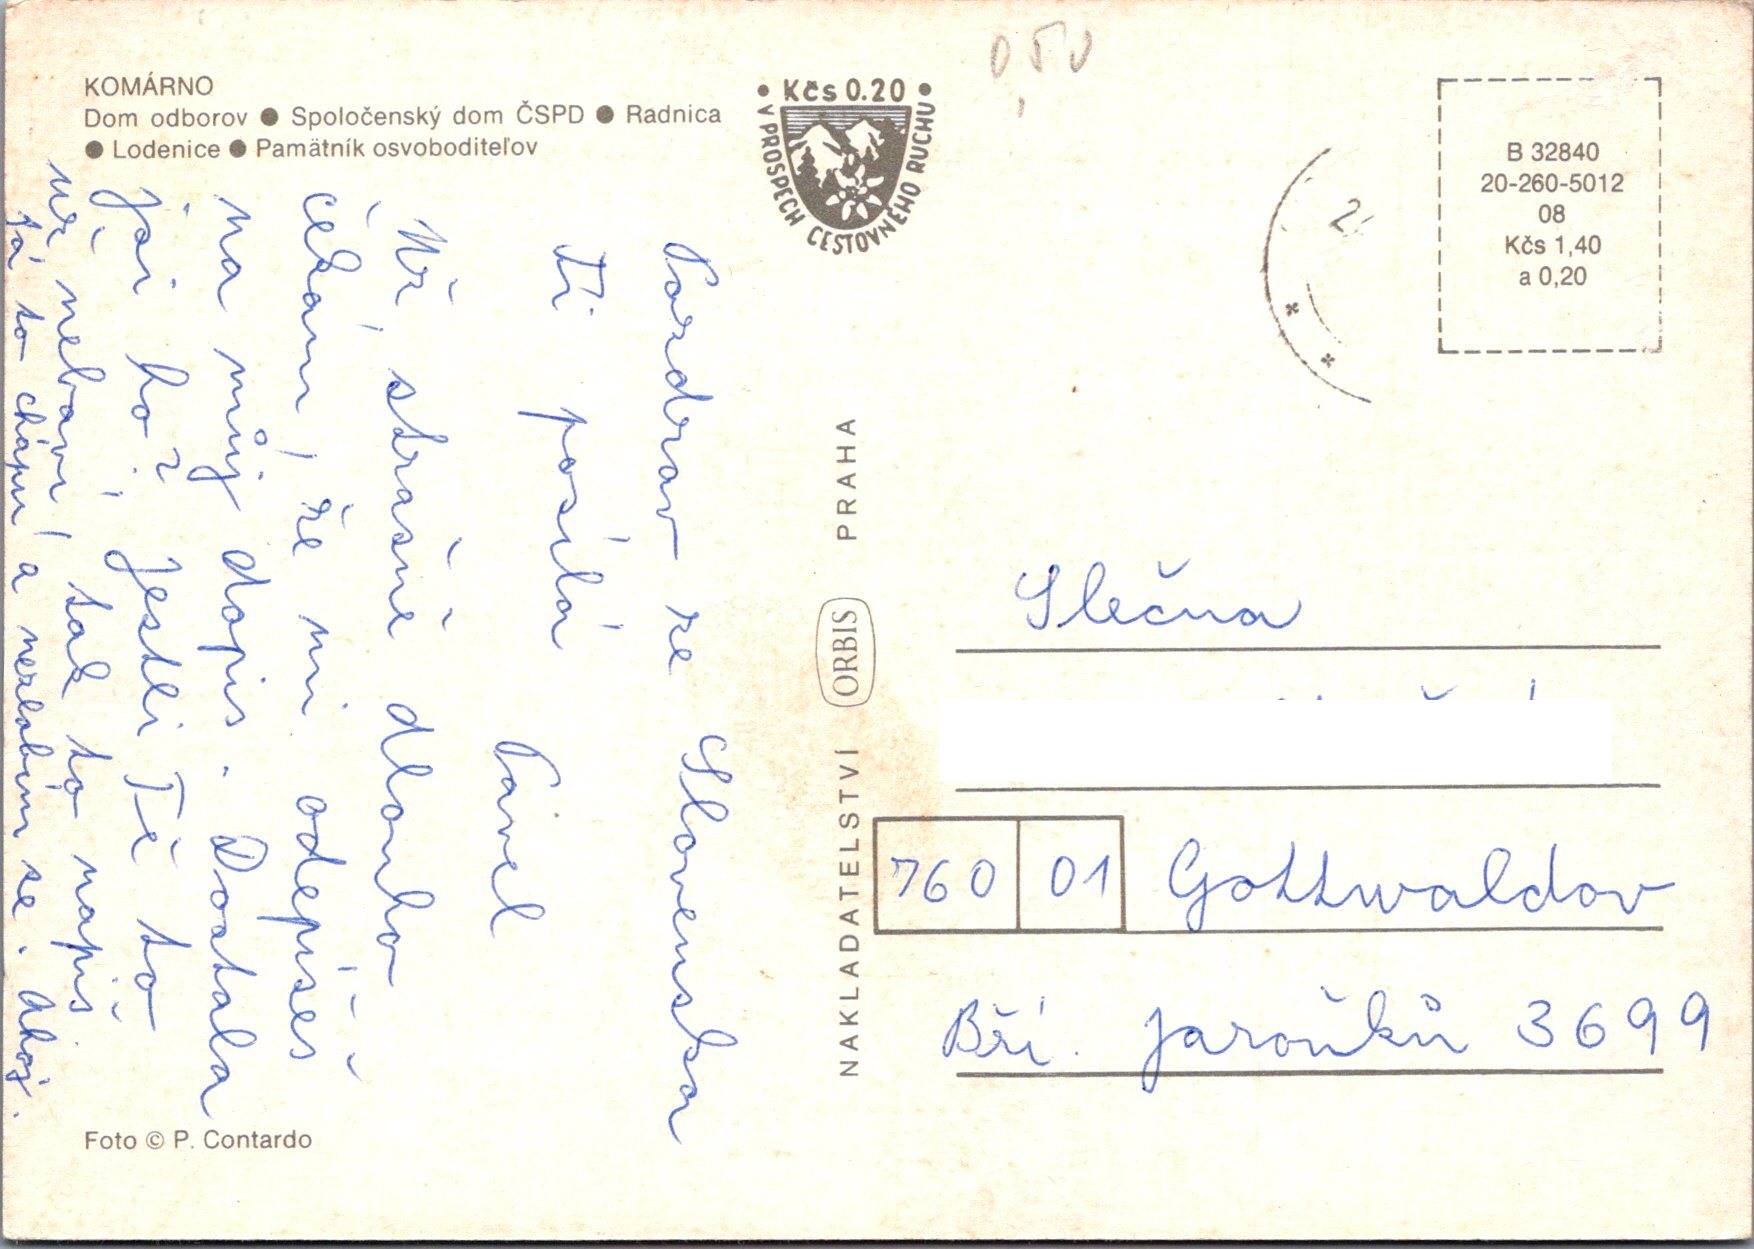 KOMÁRNO
Dom odborov ● Spoločenský dom ČSPD ● Radnica
● Lodenice ● Pamätník osvoboditeľov
• Kčs 0.20 •
V PROSPECH CESTOVNÉHO RUCHU
050
B 32840
20-260-5012
08
Kčs 1,40
a 0,20
Pozdrav ze Slovenska
Ti posílá
Pavel
Už strašně dlouho
čekám, že mi odepíšeš
na můj dopis. Dostala
jsi ho? Jestli Tě to
už nebaví, tak to napiš
já to chápu a nezlobím se. Ahoj.
NAKLADATELSTVÍ ORBIS PRAHA
Slečna
760 01 Gottwaldov
Bří. Jaroňků 3699
Foto © P. Contardo